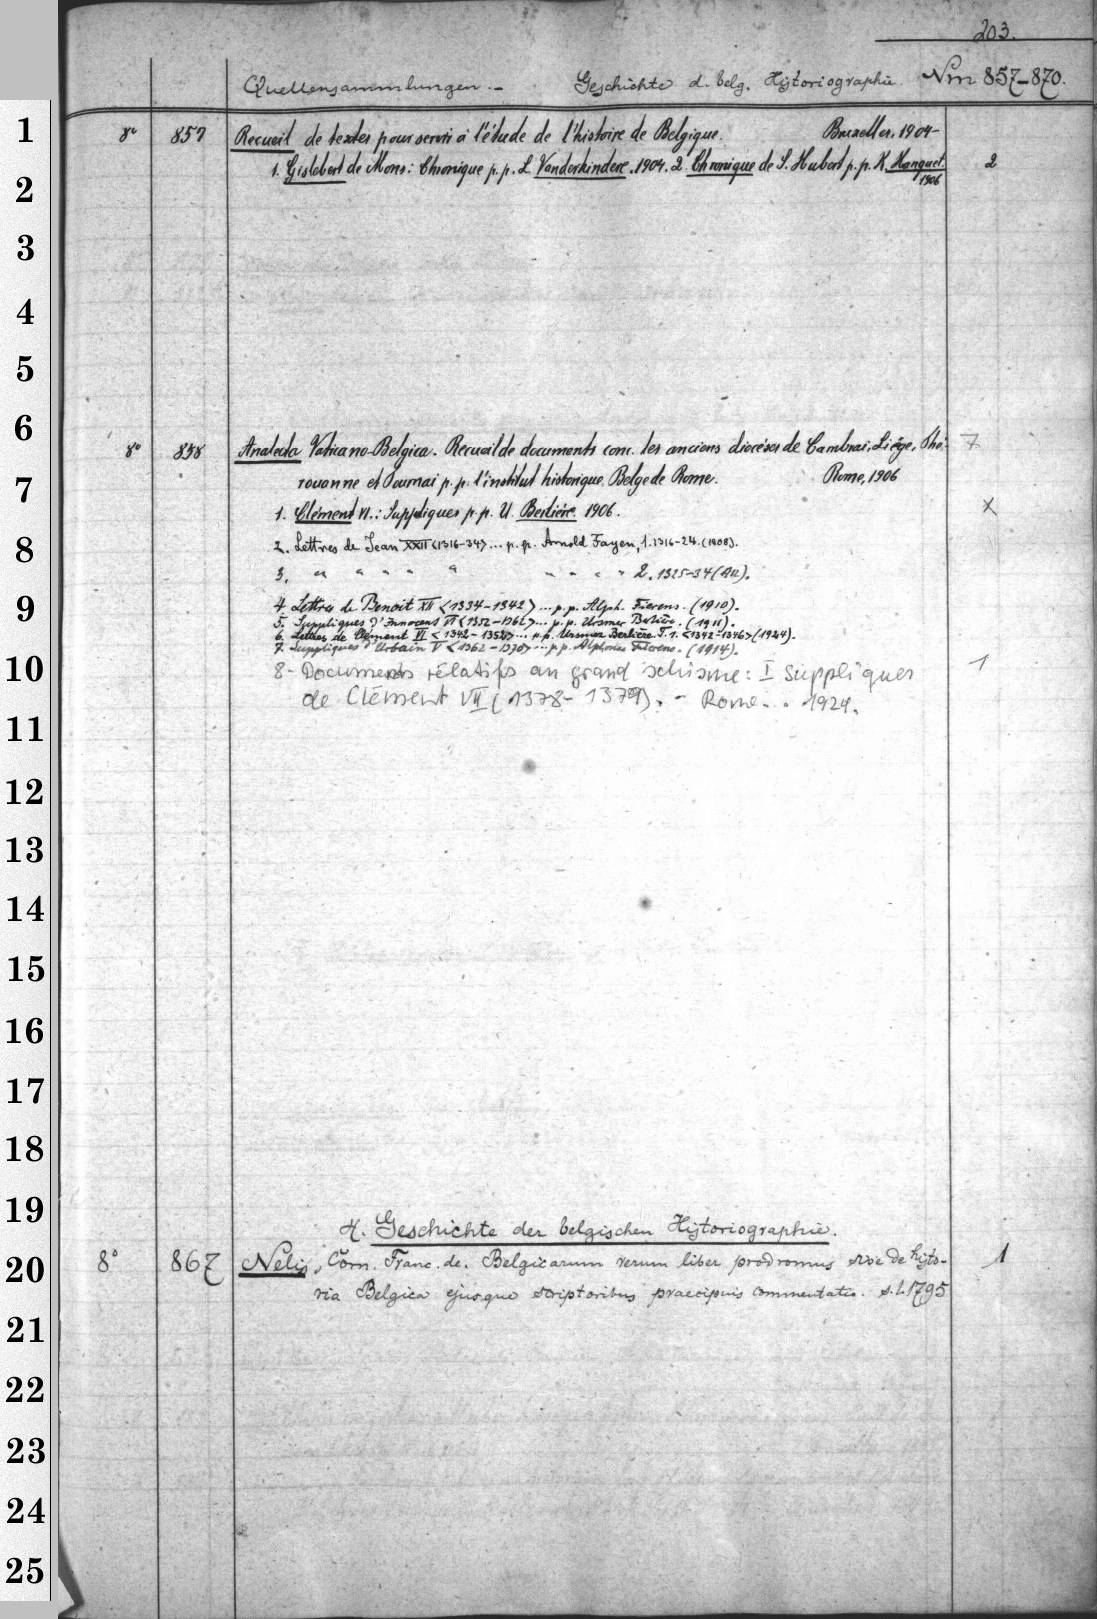 203.
Quellensammlungen.- Geschichte d. belg. Historiographie Nm 857-870.
1 8° 857 Recueil de textes pour servir à l'étude de l'histoire de Belgique. Bruxelles, 1904-
1. Gislebert de Mons: Chronique p.p. L. Vanderkindere. 1904. 2. Chronique de S. Hubert p.p. K. Hanquet. 2
2 1906
3
4
5
6 8° 858 Analecta Vaticano-Belgica. Recueil de documents conc. les anciens diocéses de Cambrai, Liége, Thé- 7
7 rouanne et Tournai p.p. l'institut historique Belge de Rome. Rome, 1906
1. Clément VI.: Suppliques p.p. U. Berlière 1906. x
8 2. Lettres de Jean XXII <1316-34> ... p.p. Arnold Fayen, 1. 1316-24. (1908).
3. " " " " " " " " " 2. 1325-34 (Au).
9 4. Lettres de Benoit XII <1334-1342> ... p.p. Alph. Fierens. (1910).
5. Suppliques d'Innocent VI <1352-1362> ... p.p. Ursmer Berlière. (1911).
6. Lettres de Clément VI <1342-1352> ... p.p. Ursmer Berlière. T. 1. <1342-1346> (1924).
7. Suppliques d'Urbain V <1362-1370> ... p.p. Alphonse Fierens. (1914).
10 8- Documents rélatifs au grand schisme: I Suppliques 1
de Clément VII (1378-1379). - Rome. . 1924.
11
12
13
14
15
16
17
18
19 4. Geschichte der belgischen Historiographie.
20 8° 867 Nelis, Corn. Franc. de. Belgicarum rerum liber prodromus sive de histo- 1
ria Belgica ejusque scriptoribus praecipuis commentatio. s.l. 1795
21
22
23
24
25